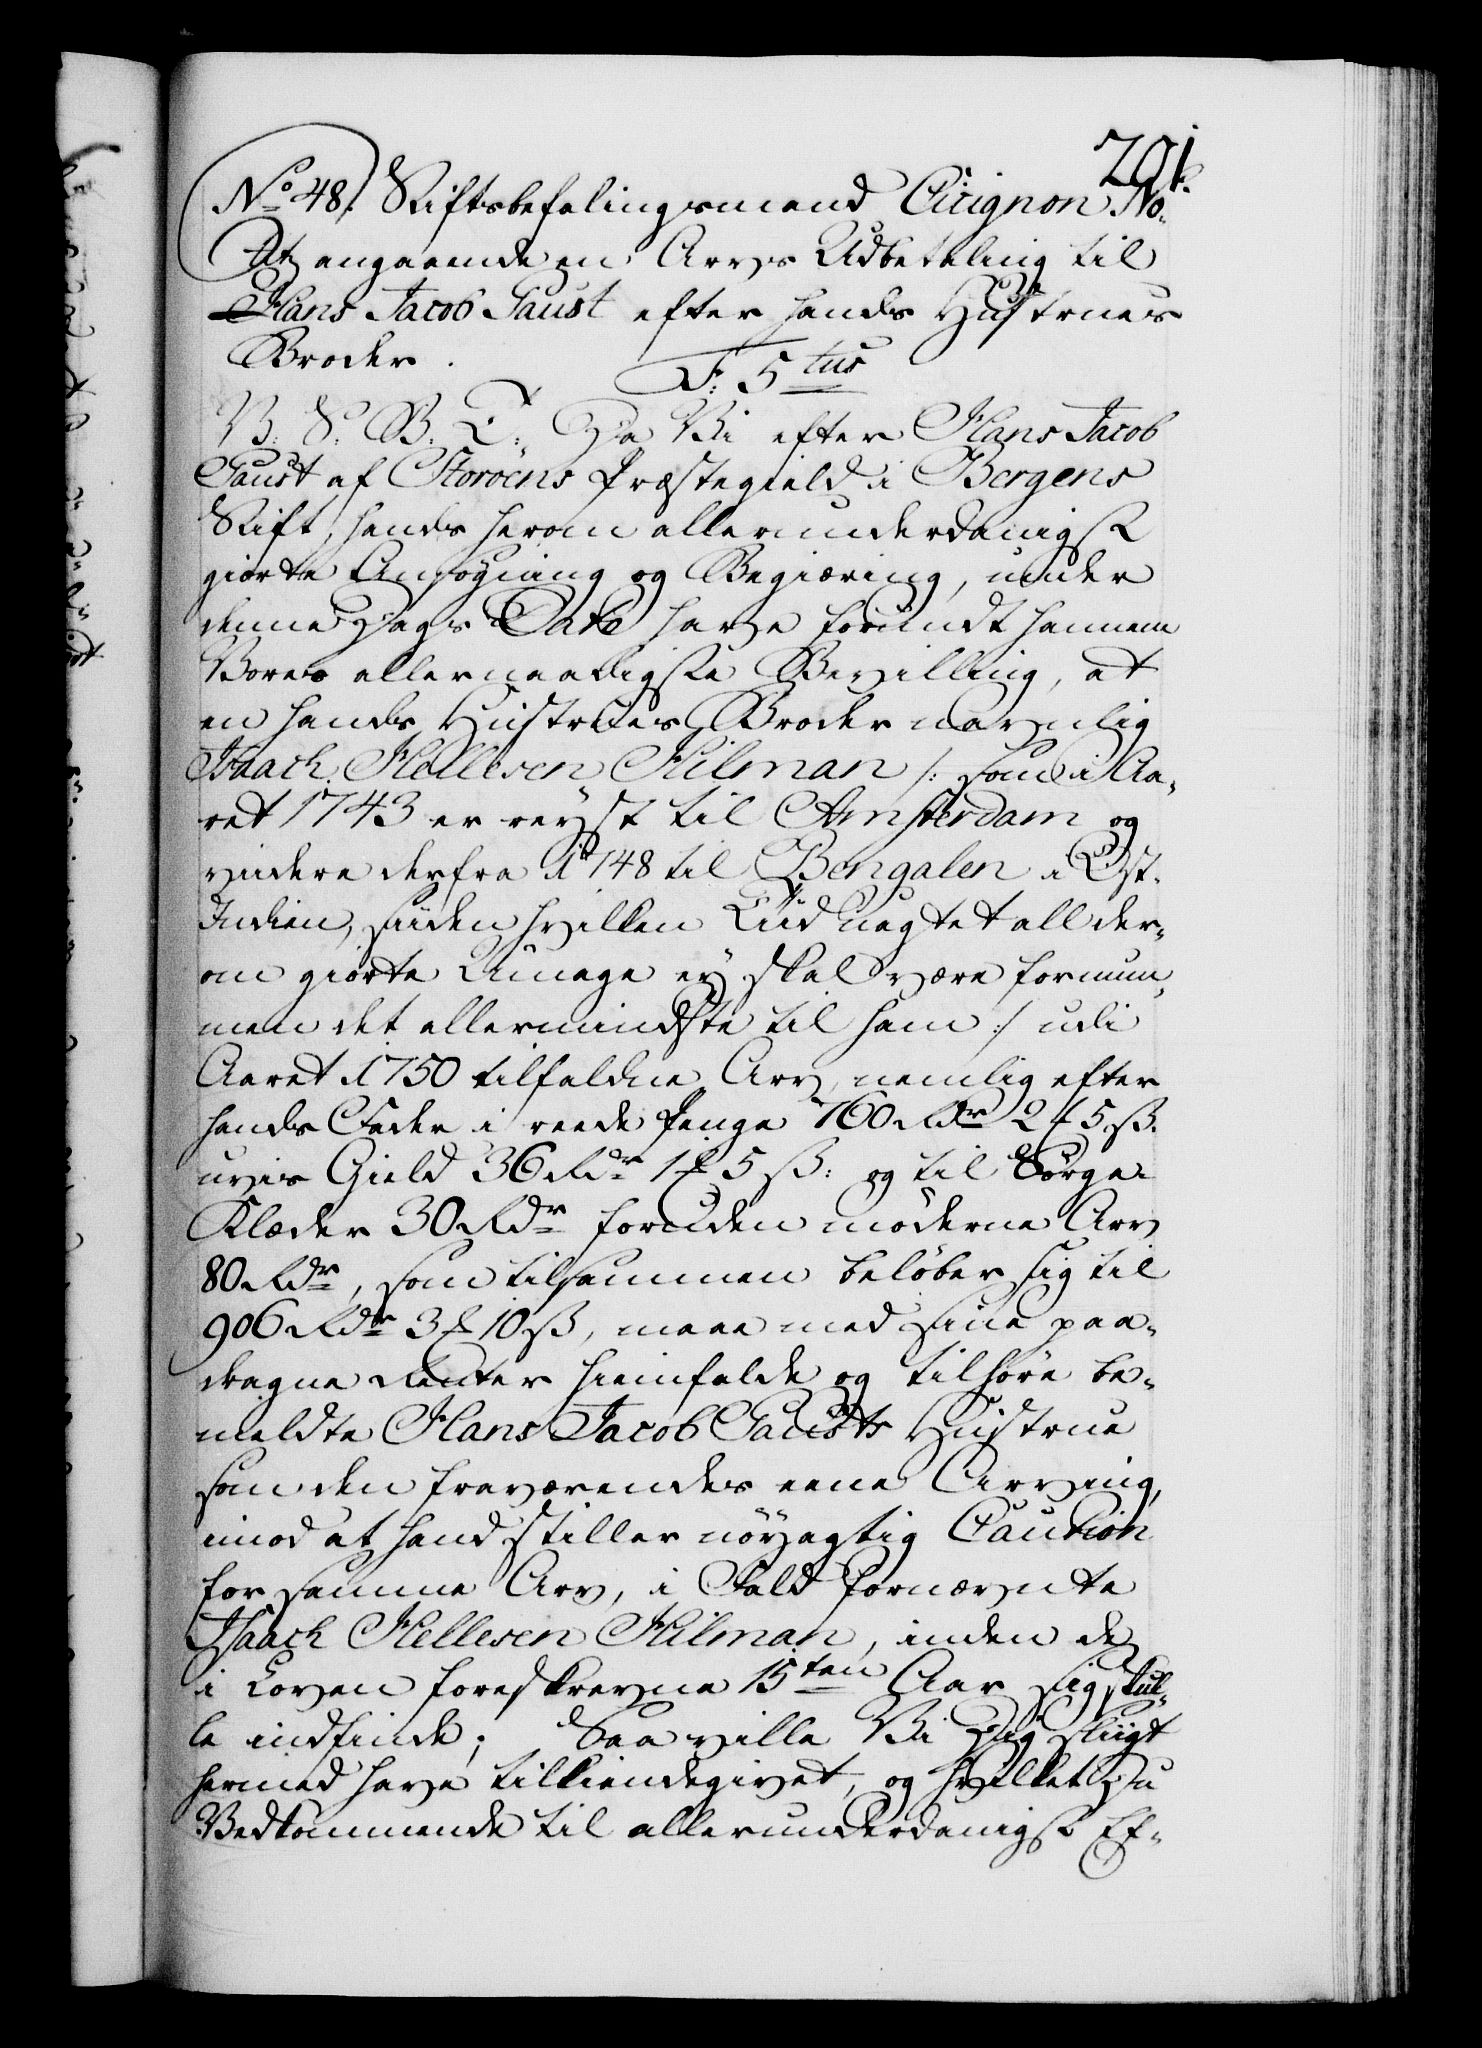 201.
No 48. Stiftsbefalingsmand Cicignon No-
tits angaaende en Arvs Udbetaling til
Hans Jacob Faust efter hands Hustrues
Broder.
F: 5tus
V. S. B. T. Da Vi efter Hans Jacob
Faust af Storöens Præstegield i Bergens
Stift, hands herom allerunderdanigst
giorte Ansøgning og Begiæring, under
denne Dags Dato have forundt hannem
Vores allernaadigste Bevilling, at
en hands Hustrues Broder navnlig
Isaach Hellesen Hilman /: som i Aa-
ret 1743 er reyst til Amsterdam og
videre derfra 1748 til Bengalen i Ost-
Indien, siiden hvilken Tiid uagtet all der-
om giorte Umage ey skal være fornum-
men det allermindste til ham :/ udi
Aaret 1750 tilfaldne Arv, nemlig efter
hands Fader i reede Penge 760 Rdr 2 ℔ 5 ß.
uvis Gield 36 Rdr 1 ℔ 5 ß: og til Sørge-
Klæder 30 Rdr foruden møderne Arv
80 Rdr, som tilsammen beløber sig til
906 Rdr 3 ℔ 10 ß, maae med sine paa-
dragne Renter hiemfalde og tilhøre be-
meldte Hans Jacob Fausts Hustrue
som den fraværendes eene Arving,
imod at hand stiller nöyagtig Caution
for samme Arv, i Fald fornævnte
Isaach Hellesen Hilman, inden de
i Loven foreskrevne 15ten Aar sig skul-
le indfinde; Saa ville Vi Dig sligt
hermed have tilkiendegivet, og hvilket Du
Vedkommende til allerunderdanigst Ef-